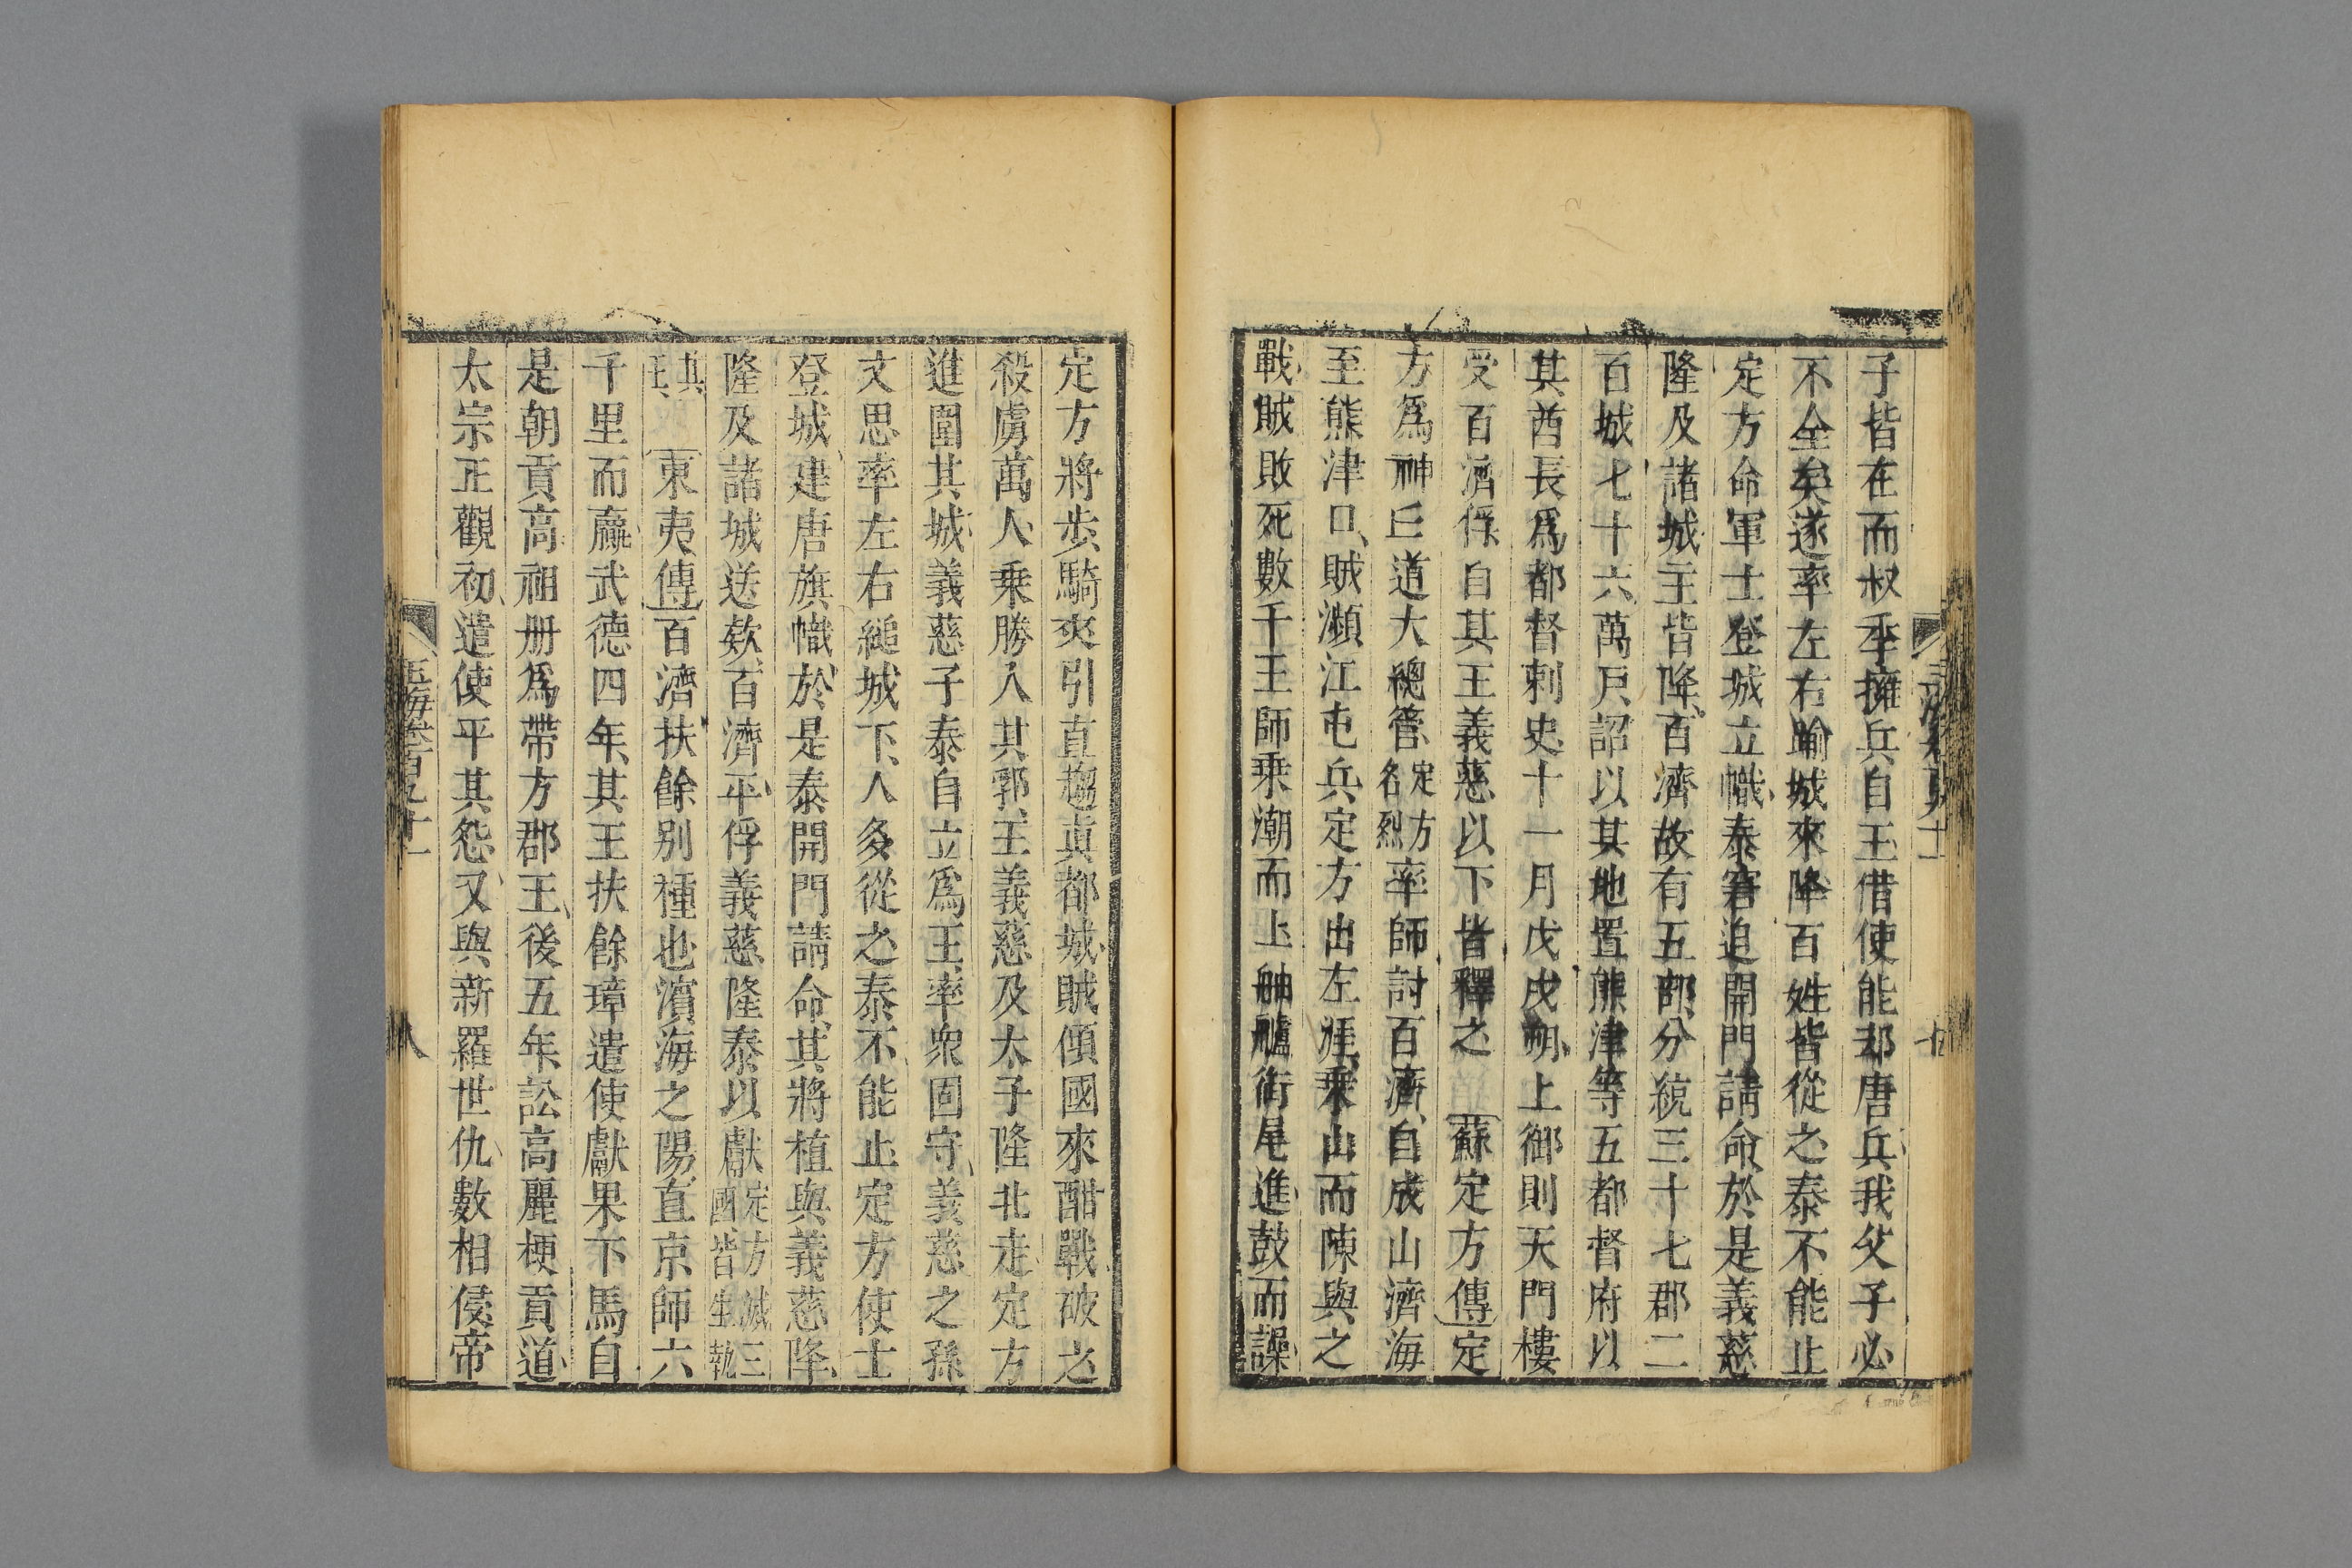 子皆在而叔季擁兵自王借使能却唐兵我父子必
不全矣遂率左右踰城來降百姓皆從之泰不能止
定方命軍士登城立幟泰窘迫開門請命於是義慈
隆及諸城主皆降百濟故有五部分統三十七郡二
百城七十六萬戸詔以其地置熊津等五都督府以
其酋長爲都督刺史十一月戊戌朔上御則天門樓
受百濟俘自其王義慈以下皆釋之 蘇定方傳定
方爲神丘道大總管定方名烈率師討百濟自成山濟海
至熊津口賊瀕江屯兵定方出左涯乗山而陳與之
戰賊敗死數千王師乗潮而上舳艫銜尾進鼓而譟
定方將歩騎夾引直趨眞都城賊傾國來酣戰破之
殺虜萬人乗勝入其郛王義慈及太子隆北走定方
進圍其城義慈子泰自立爲王率衆固守義慈之孫
文思率左右縋城下人多從之泰不能止定方使士
登城建唐旗幟於是泰開門請命其將植與義慈降
隆及諸城送欵百濟平俘義慈隆泰以獻定方滅三國皆生執
其王 東夷傳百濟扶餘别種也濱海之陽直京師六
千里而贏武德四年其王扶餘璋遣使獻果下馬自
是朝貢高祖册爲帶方郡王後五年訟高麗梗貢道
太宗正觀初遣使平其怨又與新羅世仇數相侵帝
玉海卷百九十一
八